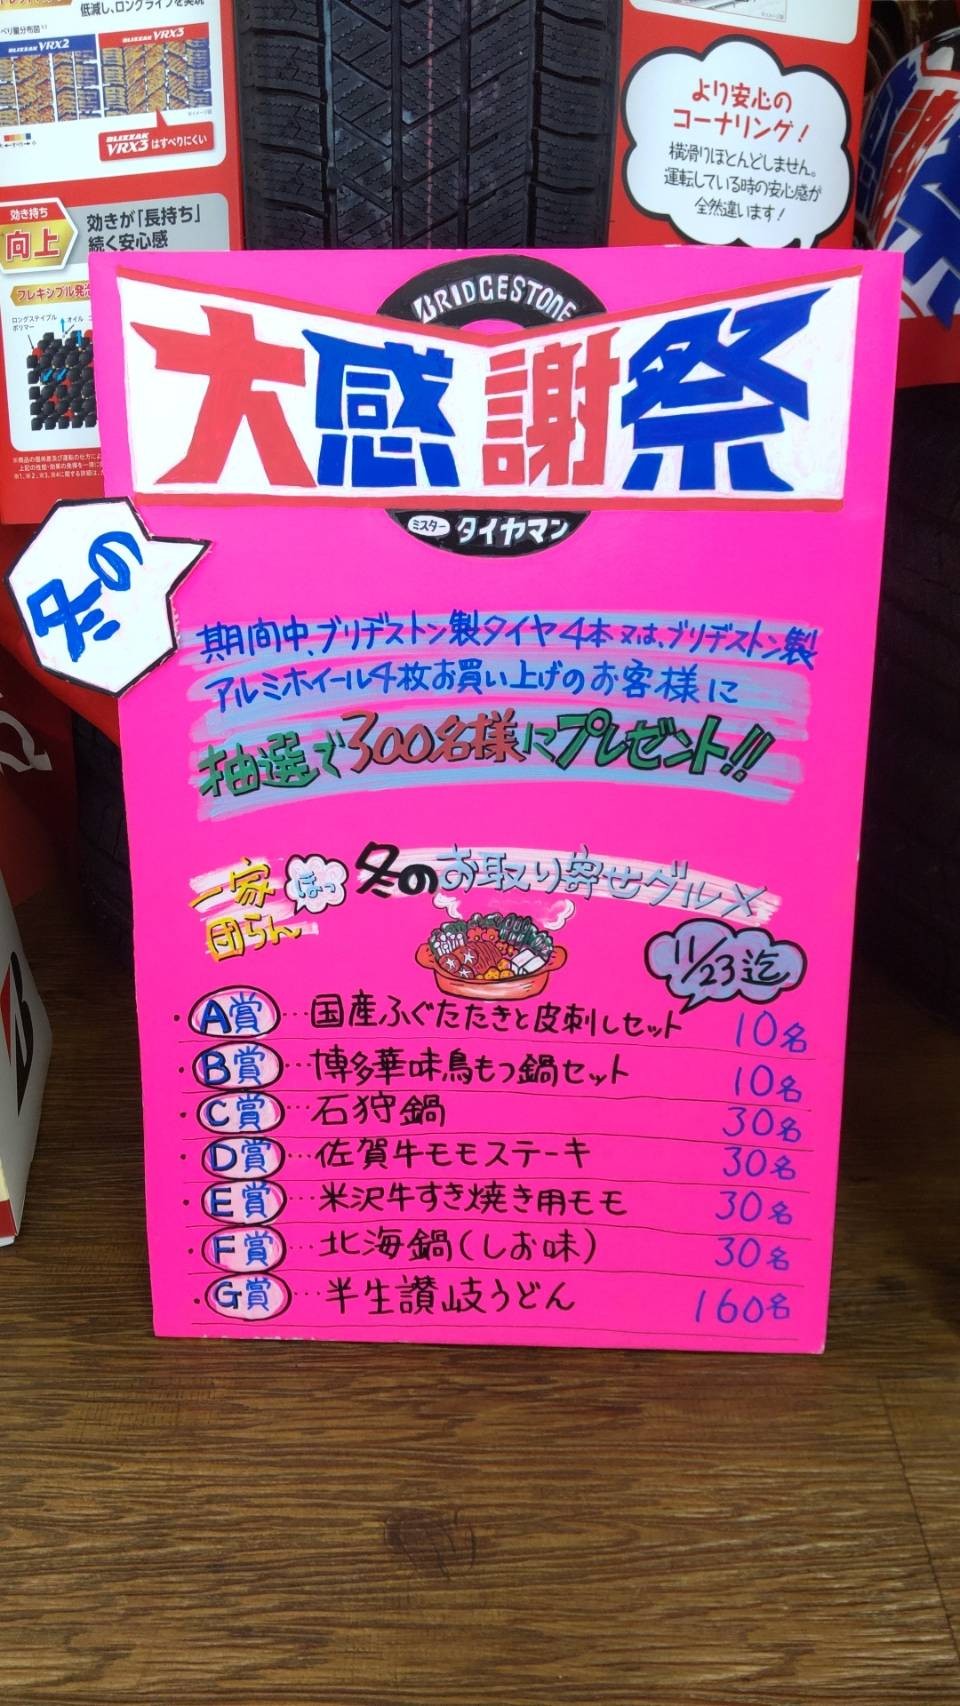 低減し、ロングライフを実現
BLIZZAK VRX2
BLIZZAK VRX3
BLIZZAK
VRX3はすべりにくい
効き持ち
向上
効きが「長持ち」
続く安心感
ロングステイブル
ポリマー
オイル
より安心の
コーナリング!
横滑りほとんどしません。
運転している時の安心感が
全然違います!
BRIDGESTONE
大感謝祭
ミスタータイヤマン
冬の
期間中、ブリヂストン製タイヤ4本又は、ブリヂストン製
アルミホイール4枚お買い上げのお客様に
抽選で300名様にプレゼント!!
一家
団らん
ほっ
冬のお取り寄せグルメ
11/23迄
・A賞…国産ふぐたたきと皮刺しセット 10名
・B賞…博多華味鳥もつ鍋セット 10名
・C賞…石狩鍋 30名
・D賞…佐賀牛モモステーキ 30名
・E賞…米沢牛すき焼き用モモ 30名
・F賞…北海鍋(しお味) 30名
・G賞…半生讃岐うどん 160名